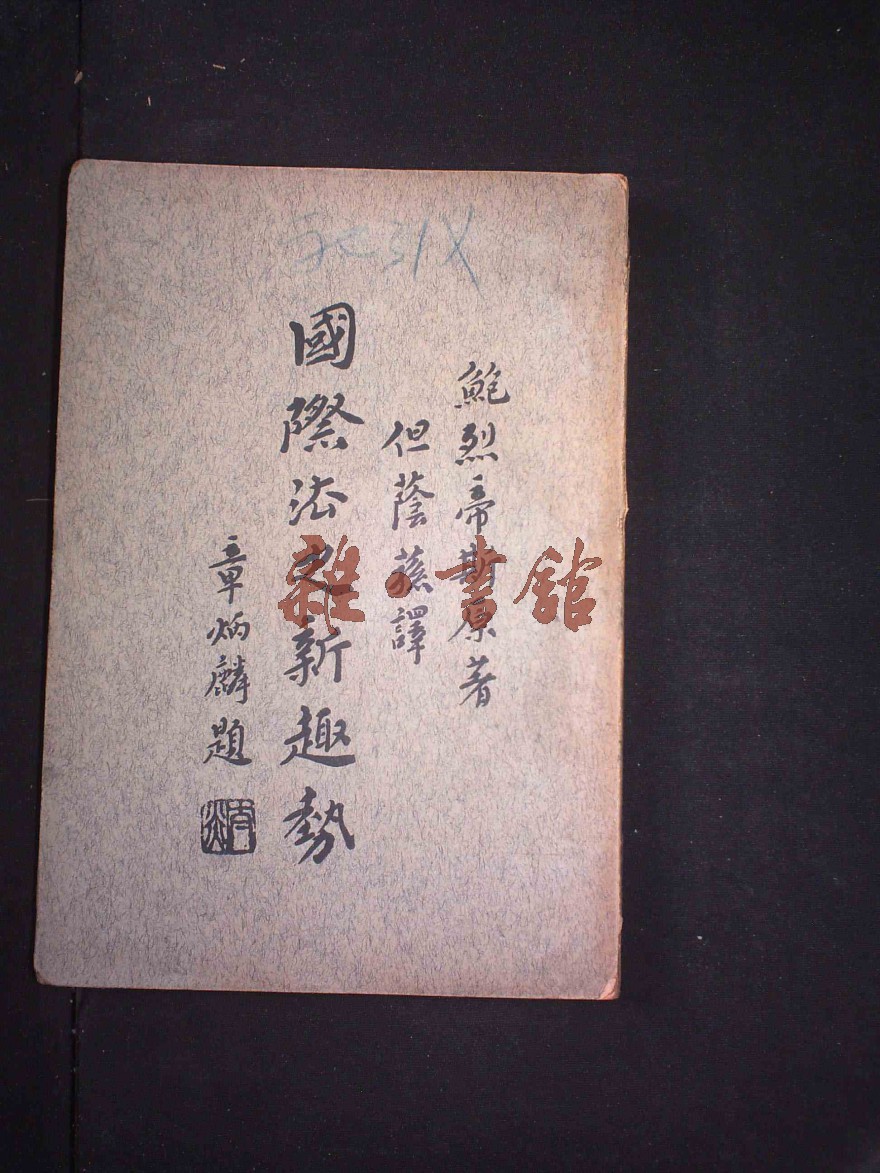 鮑烈帝斯原著
但蔭蓀譯
國際法之新趣勢
章炳麟題
雜·書館